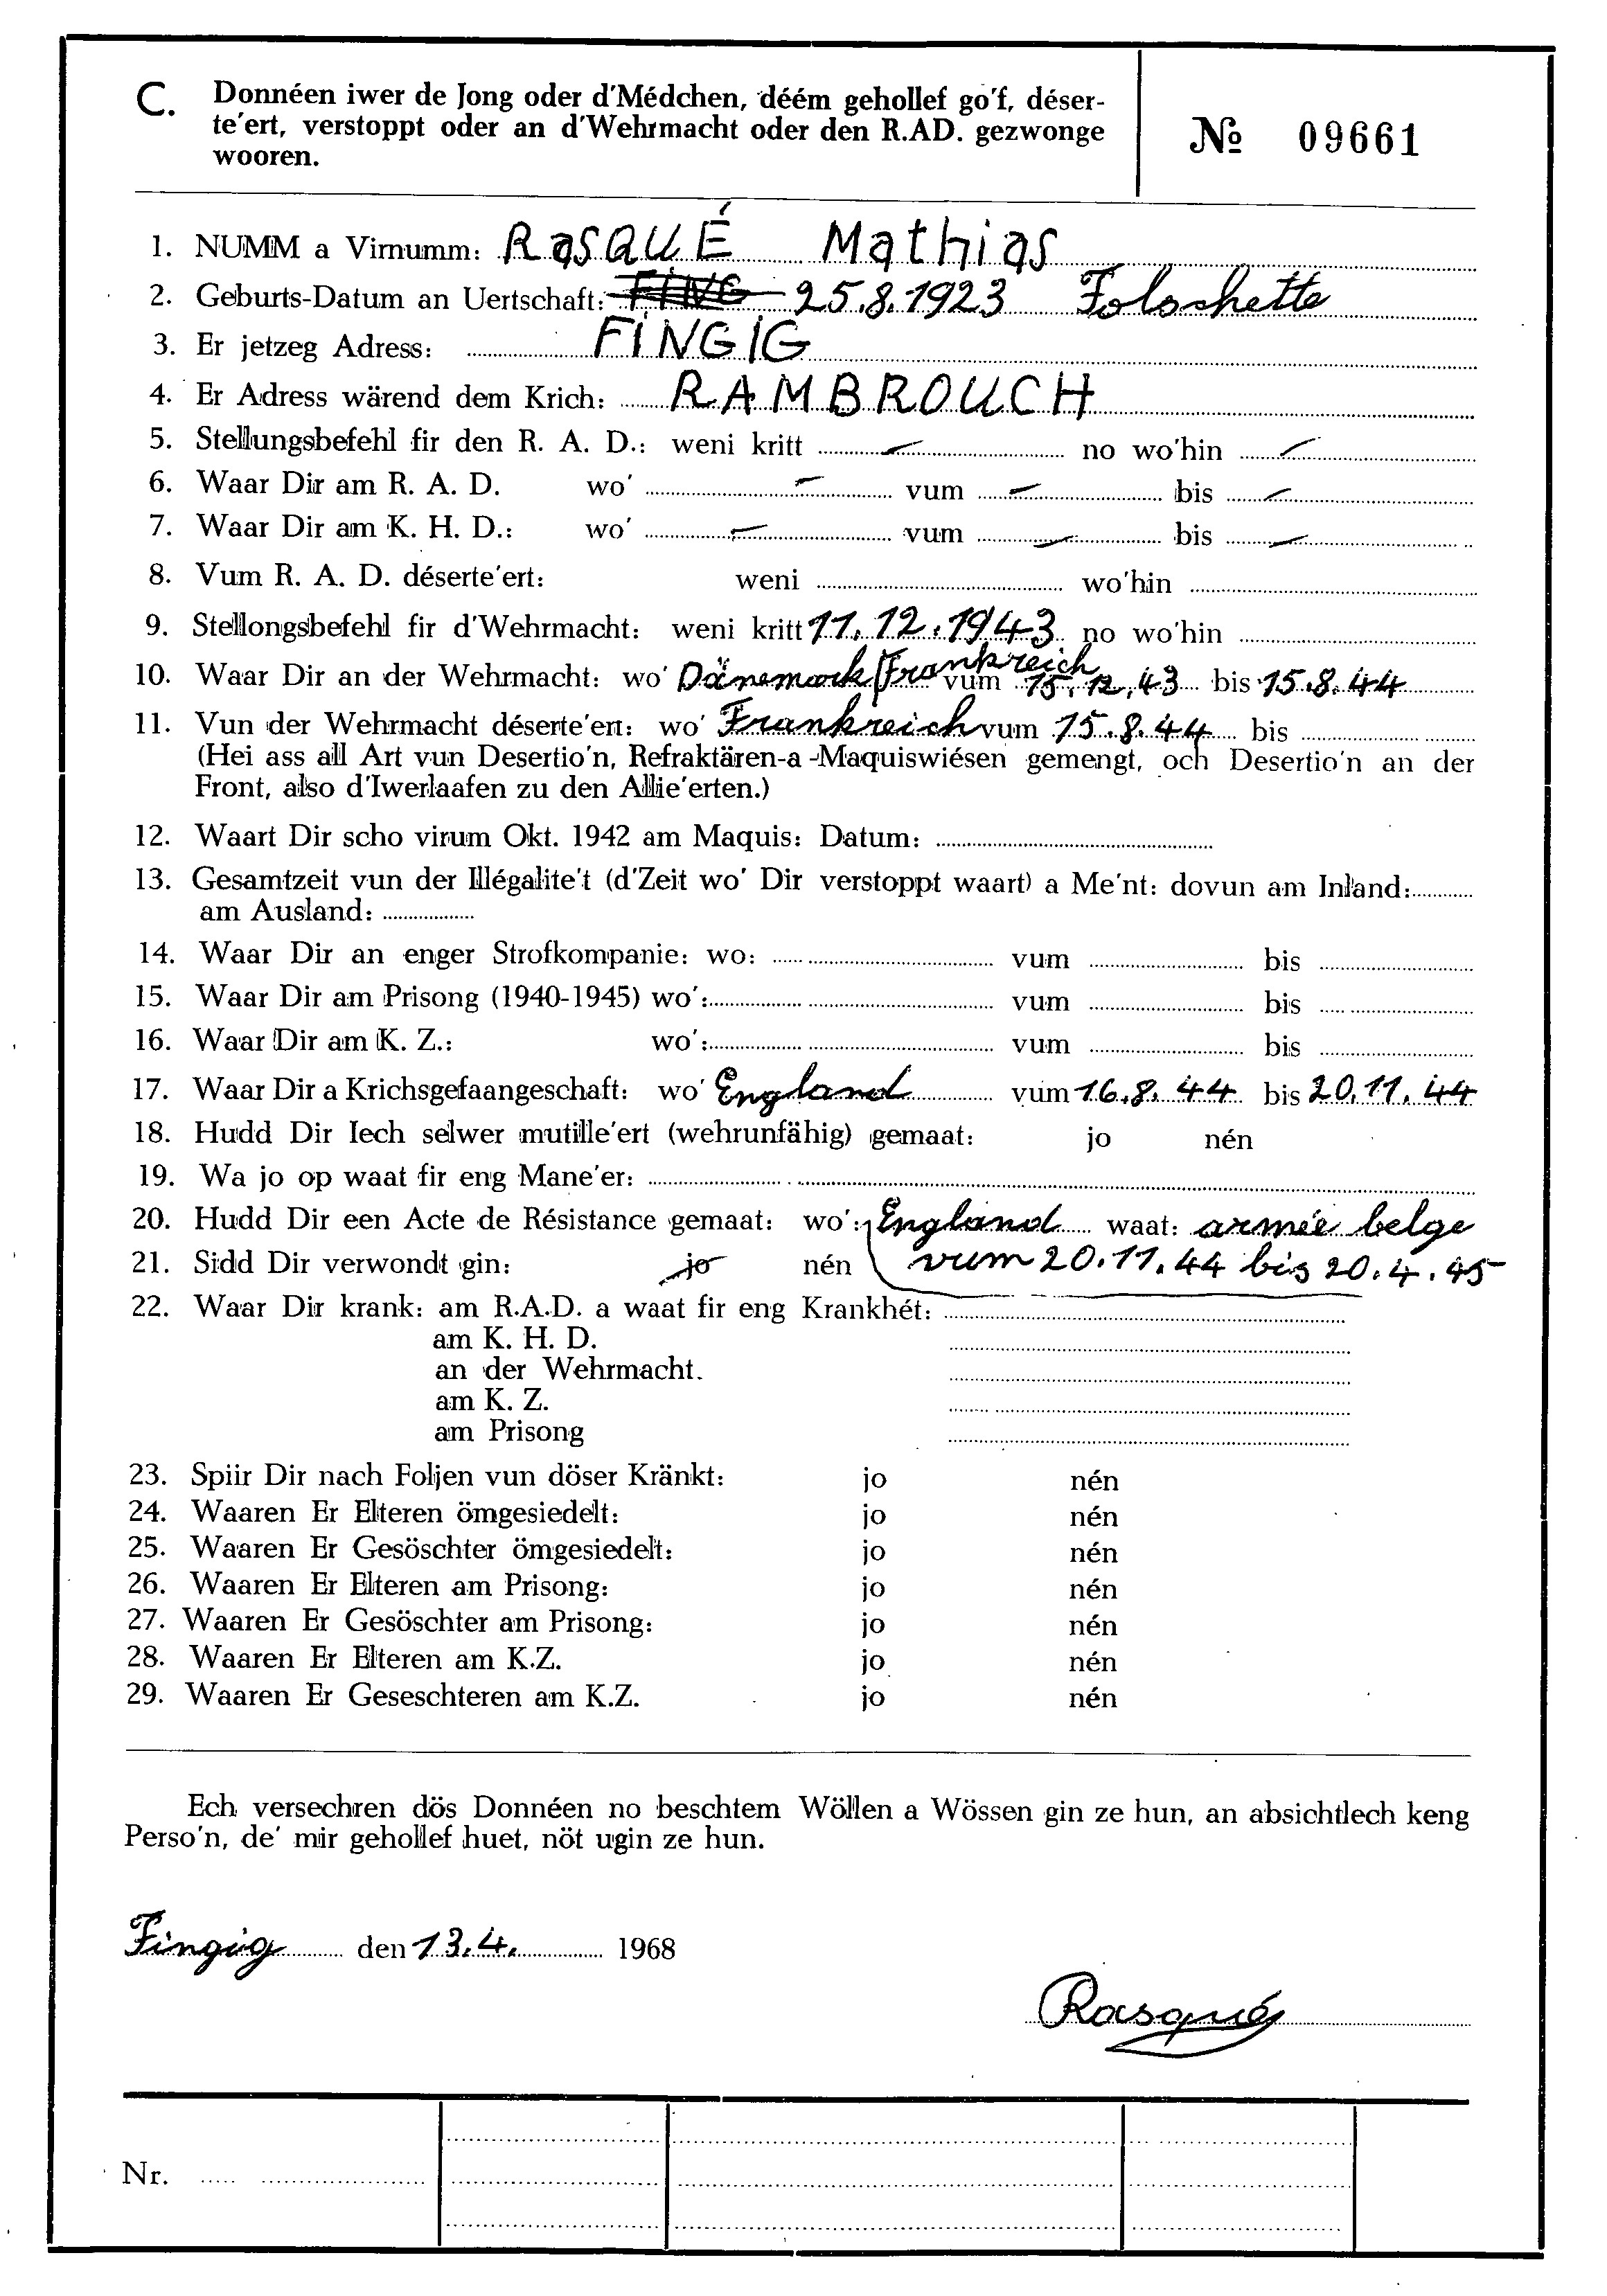 C. Donnéen iwer de Jong oder d'Médchen, déém gehollef go'f, déser-
te'ert, verstoppt oder an d'Wehrmacht oder den R.AD. gezwonge
wooren.
№ 09661
1. NUMM a Virnumm: RasQUÉ Mathias
2. Geburts-Datum an Uertschaft: FING 25.8.1923 Folschette
3. Er jetzeg Adress: FINGIG
4. Er Adress wärend dem Krich: RAMBROUCH
5. Stellungsbefehl fir den R. A. D.: weni kritt — no wo'hin —
6. Waar Dir am R. A. D. wo' — vum — bis —
7. Waar Dir am K. H. D.: wo' — vum — bis —
8. Vum R. A. D. déserte'ert: weni wo'hin
9. Stellongsbefehl fir d'Wehrmacht: weni kritt 11.12.1943 no wo'hin
10. Waar Dir an der Wehrmacht: wo' Dänemark/Frankreich vum 15.12.43 bis 15.8.44
11. Vun der Wehrmacht déserte'ert: wo' Frankreich vum 15.8.44 bis
(Hei ass all Art vun Desertio'n, Refraktären-a -Maquiswiésen gemengt, och Desertio'n an der
Front, also d'Iwerlaafen zu den Allie'erten.)
12. Waart Dir scho virum Okt. 1942 am Maquis: Datum:
13. Gesamtzeit vun der Illégalite't (d'Zeit wo' Dir verstoppt waart) a Me'nt: dovun am Inland:
am Ausland:
14. Waar Dir an enger Strofkompanie: wo: vum bis
15. Waar Dir am Prisong (1940-1945) wo': vum bis
16. Waar Dir am K. Z.: wo': vum bis
17. Waar Dir a Krichsgefaangeschaft: wo' England vum 16.8.44 bis 20.11.44
18. Hudd Dir Iech selwer mutille'ert (wehrunfähig) gemaat: jo nén
19. Wa jo op waat fir eng Mane'er:
20. Hudd Dir een Acte de Résistance gemaat: wo': England waat: armée belge
21. Sidd Dir verwondt gin: jo nén vum 20.11.44 bis 20.4.45
22. Waar Dir krank: am R.A.D. a waat fir eng Krankhét:
am K. H. D.
an der Wehrmacht.
am K. Z.
am Prisong
23. Spiir Dir nach Foljen vun döser Kränkt: jo nén
24. Waaren Er Elteren ömgesiedelt: jo nén
25. Waaren Er Gesöschter ömgesiedelt: jo nén
26. Waaren Er Elteren am Prisong: jo nén
27. Waaren Er Gesöschter am Prisong: jo nén
28. Waaren Er Elteren am K.Z. jo nén
29. Waaren Er Geseschteren am K.Z. jo nén
Ech versechren dös Donnéen no beschtem Wöllen a Wössen gin ze hun, an absichtlech keng
Perso'n, de' mir gehollef huet, nöt ugin ze hun.
Fingig den 13.4. 1968
Rasqué
Nr.